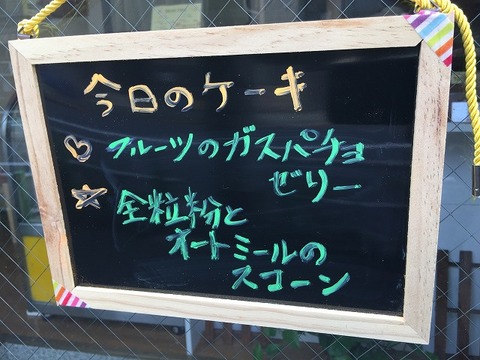 今日のケーキ
♡ フルーツのガスパチョ
ゼリー
☆ 全粒粉と
オートミールの
スコーン